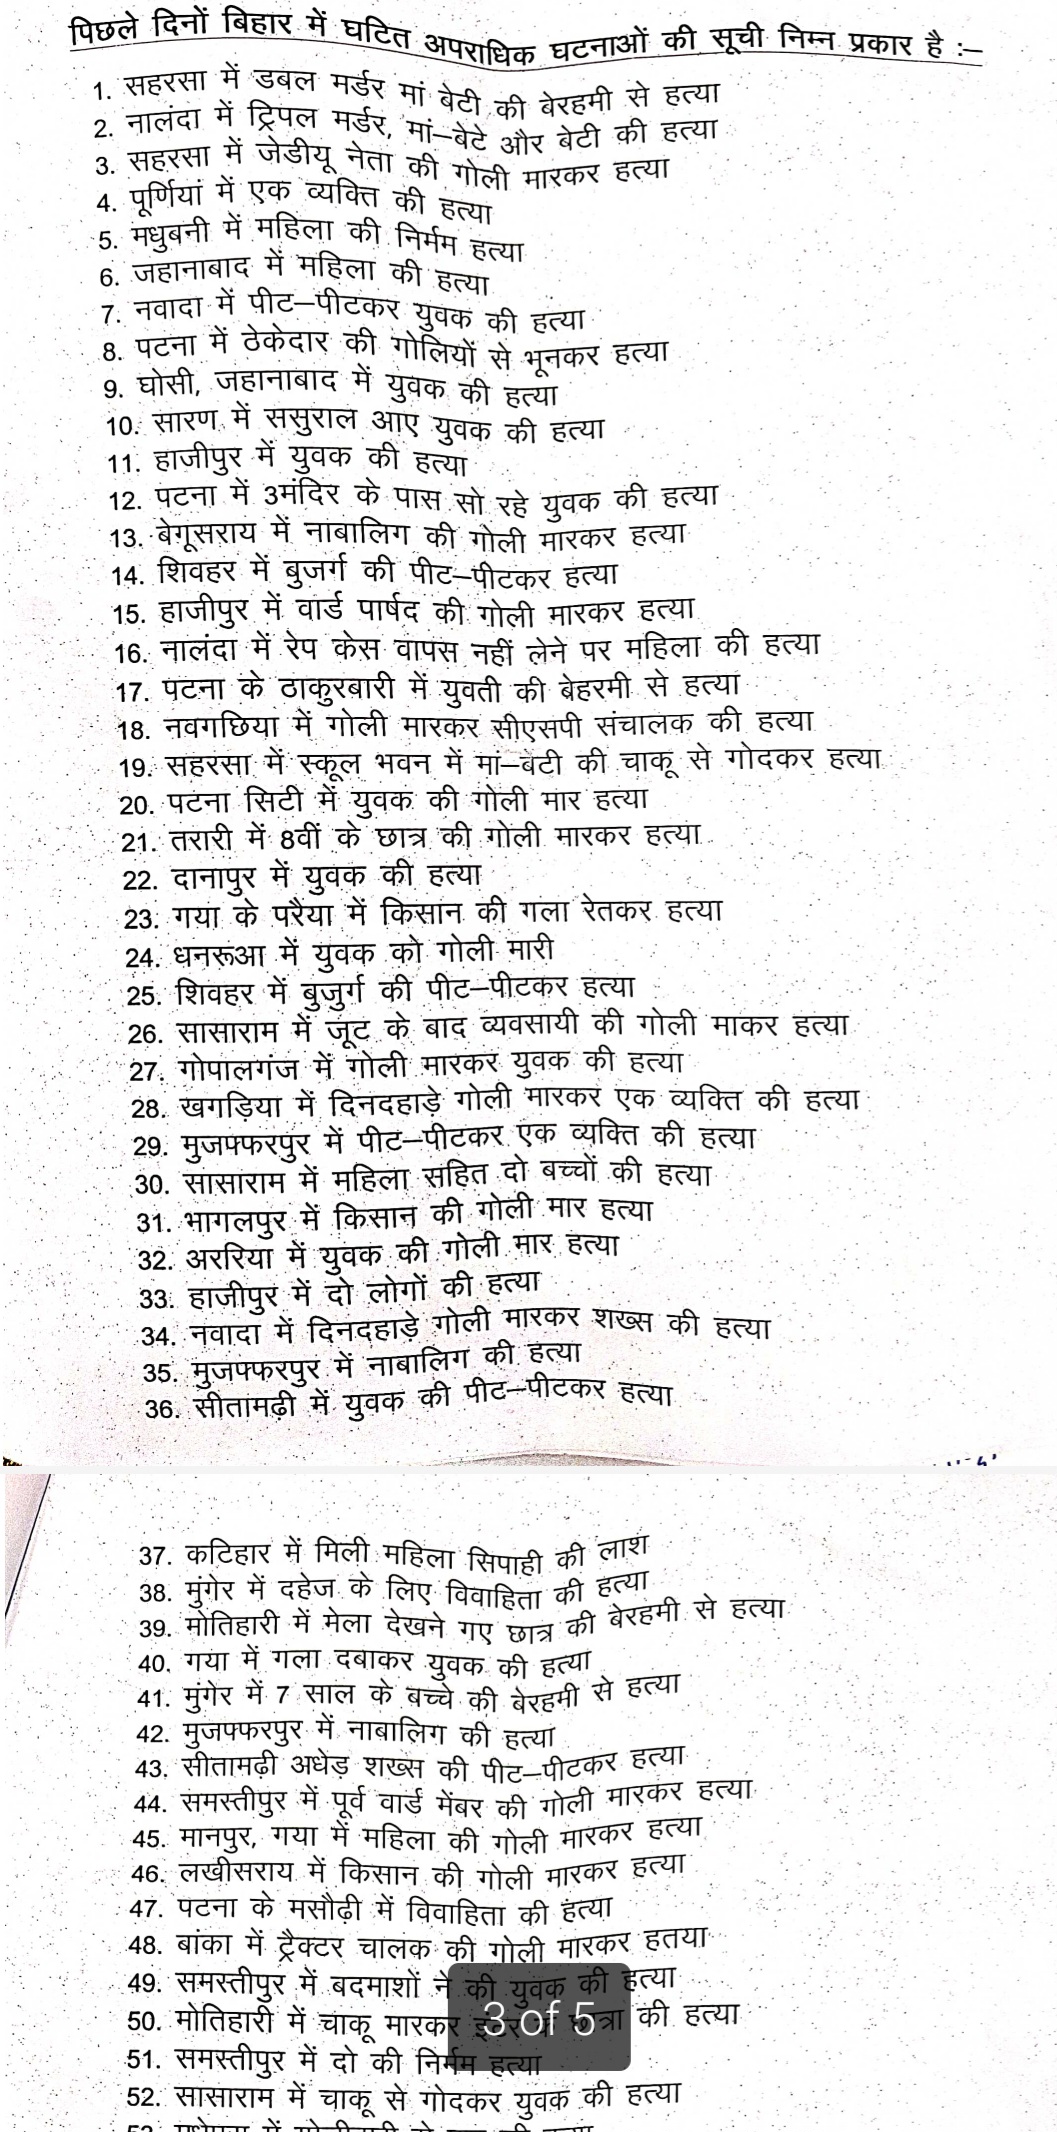 पिछले दिनों बिहार में घटित अपराधिक घटनाओं की सूची निम्न प्रकार है :–
1. सहरसा में डबल मर्डर मां बेटी की बेरहमी से हत्या
2. नालंदा में ट्रिपल मर्डर, मां–बेटे और बेटी की हत्या
3. सहरसा में जेडीयू नेता की गोली मारकर हत्या
4. पूर्णियां में एक व्यक्ति की हत्या
5. मधुबनी में महिला की निर्मम हत्या
6. जहानाबाद में महिला की हत्या
7. नवादा में पीट–पीटकर युवक की हत्या
8. पटना में ठेकेदार की गोलियों से भूनकर हत्या
9. घोसी, जहानाबाद में युवक की हत्या
10. सारण में ससुराल आए युवक की हत्या
11. हाजीपुर में युवक की हत्या
12. पटना में 3मंदिर के पास सो रहे युवक की हत्या
13. बेगूसराय में नाबालिग की गोली मारकर हत्या
14. शिवहर में बुजर्ग की पीट–पीटकर हत्या
15. हाजीपुर में वार्ड पार्षद की गोली मारकर हत्या
16. नालंदा में रेप केस वापस नहीं लेने पर महिला की हत्या
17. पटना के ठाकुरबारी में युवती की बेहरमी से हत्या
18. नवगछिया में गोली मारकर सीएसपी संचालक की हत्या
19. सहरसा में स्कूल भवन में मां–बेटी की चाकू से गोदकर हत्या
20. पटना सिटी में युवक की गोली मार हत्या
21. तरारी में 8वीं के छात्र की गोली मारकर हत्या
22. दानापुर में युवक की हत्या
23. गया के परैया में किसान की गला रेतकर हत्या
24. धनरूआ में युवक को गोली मारी
25. शिवहर में बुजुर्ग की पीट–पीटकर हत्या
26. सासाराम में जूट के बाद व्यवसायी की गोली माकर हत्या
27. गोपालगंज में गोली मारकर युवक की हत्या
28. खगड़िया में दिनदहाड़े गोली मारकर एक व्यक्ति की हत्या
29. मुजफ्फरपुर में पीट–पीटकर एक व्यक्ति की हत्या
30. सासाराम में महिला सहित दो बच्चों की हत्या
31. भागलपुर में किसान की गोली मार हत्या
32. अररिया में युवक की गोली मार हत्या
33. हाजीपुर में दो लोगों की हत्या
34. नवादा में दिनदहाड़े गोली मारकर शख्स की हत्या
35. मुजफ्फरपुर में नाबालिग की हत्या
36. सीतामढ़ी में युवक की पीट–पीटकर हत्या
37. कटिहार में मिली महिला सिपाही की लाश
38. मुंगेर में दहेज के लिए विवाहिता की हत्या
39. मोतिहारी में मेला देखने गए छात्र की बेरहमी से हत्या
40. गया में गला दबाकर युवक की हत्या
41. मुंगेर में 7 साल के बच्चे की बेरहमी से हत्या
42. मुजफ्फरपुर में नाबालिग की हत्या
43. सीतामढ़ी अधेड़ शख्स की पीट–पीटकर हत्या
44. समस्तीपुर में पूर्व वार्ड मेंबर की गोली मारकर हत्या
45. मानपुर, गया में महिला की गोली मारकर हत्या
46. लखीसराय में किसान की गोली मारकर हत्या
47. पटना के मसौढ़ी में विवाहिता की हत्या
48. बांका में ट्रैक्टर चालक की गोली मारकर हतया
49. समस्तीपुर में बदमाशों ने की युवक की हत्या
50. मोतिहारी में चाकू मारकर इंटर के छात्रा की हत्या
3 of 5
51. समस्तीपुर में दो की निर्मम हत्या
52. सासाराम में चाकू से गोदकर युवक की हत्या